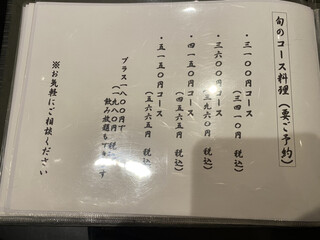 旬のコース料理（要ご予約）
・三一〇〇円コース
（三四一〇円 税込）
・三六〇〇円コース
（三九六〇円 税込）
・四一五〇円コース
（四五六五円 税込）
・五一五〇円コース
（五六六五円 税込）
プラス一八〇〇円で
（一九八〇円 税込）
飲み放題もできます
※お気軽にご相談ください